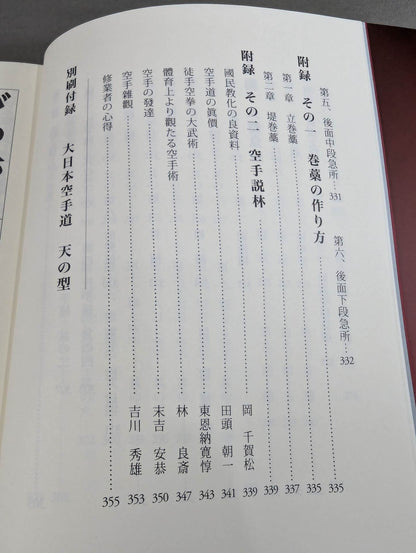 第五、後面中段急所……331　第六、後面下段急所……332
附録　その一　巻藁の作り方……335
第一章　立巻藁……335
第二章　堤巻藁……337
附録　その二　空手説林……339
國民教化の良資料……岡　千賀松　339
空手道の眞價……田頭　朝一　341
徒手空拳の大武術……東恩納寛惇　343
體育上より觀たる空手術……林　良斎　347
空手の發達……末吉　安恭　350
空手雜觀……吉川　秀雄　353
修業者の心得……355
別刷付録　大日本空手道　天の型